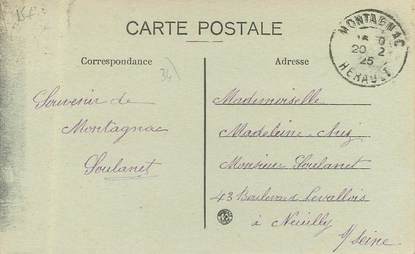 CARTE POSTALE
Correspondance
Adresse
MONTAGNAC
20 - 2
25
HERAULT
Souvenir de
Montagnac
Soulanet
Mademoiselle
Madeleine
Monsieur Soulanet
43 Boulevard Levallois
à Neuilly
s/ Seine